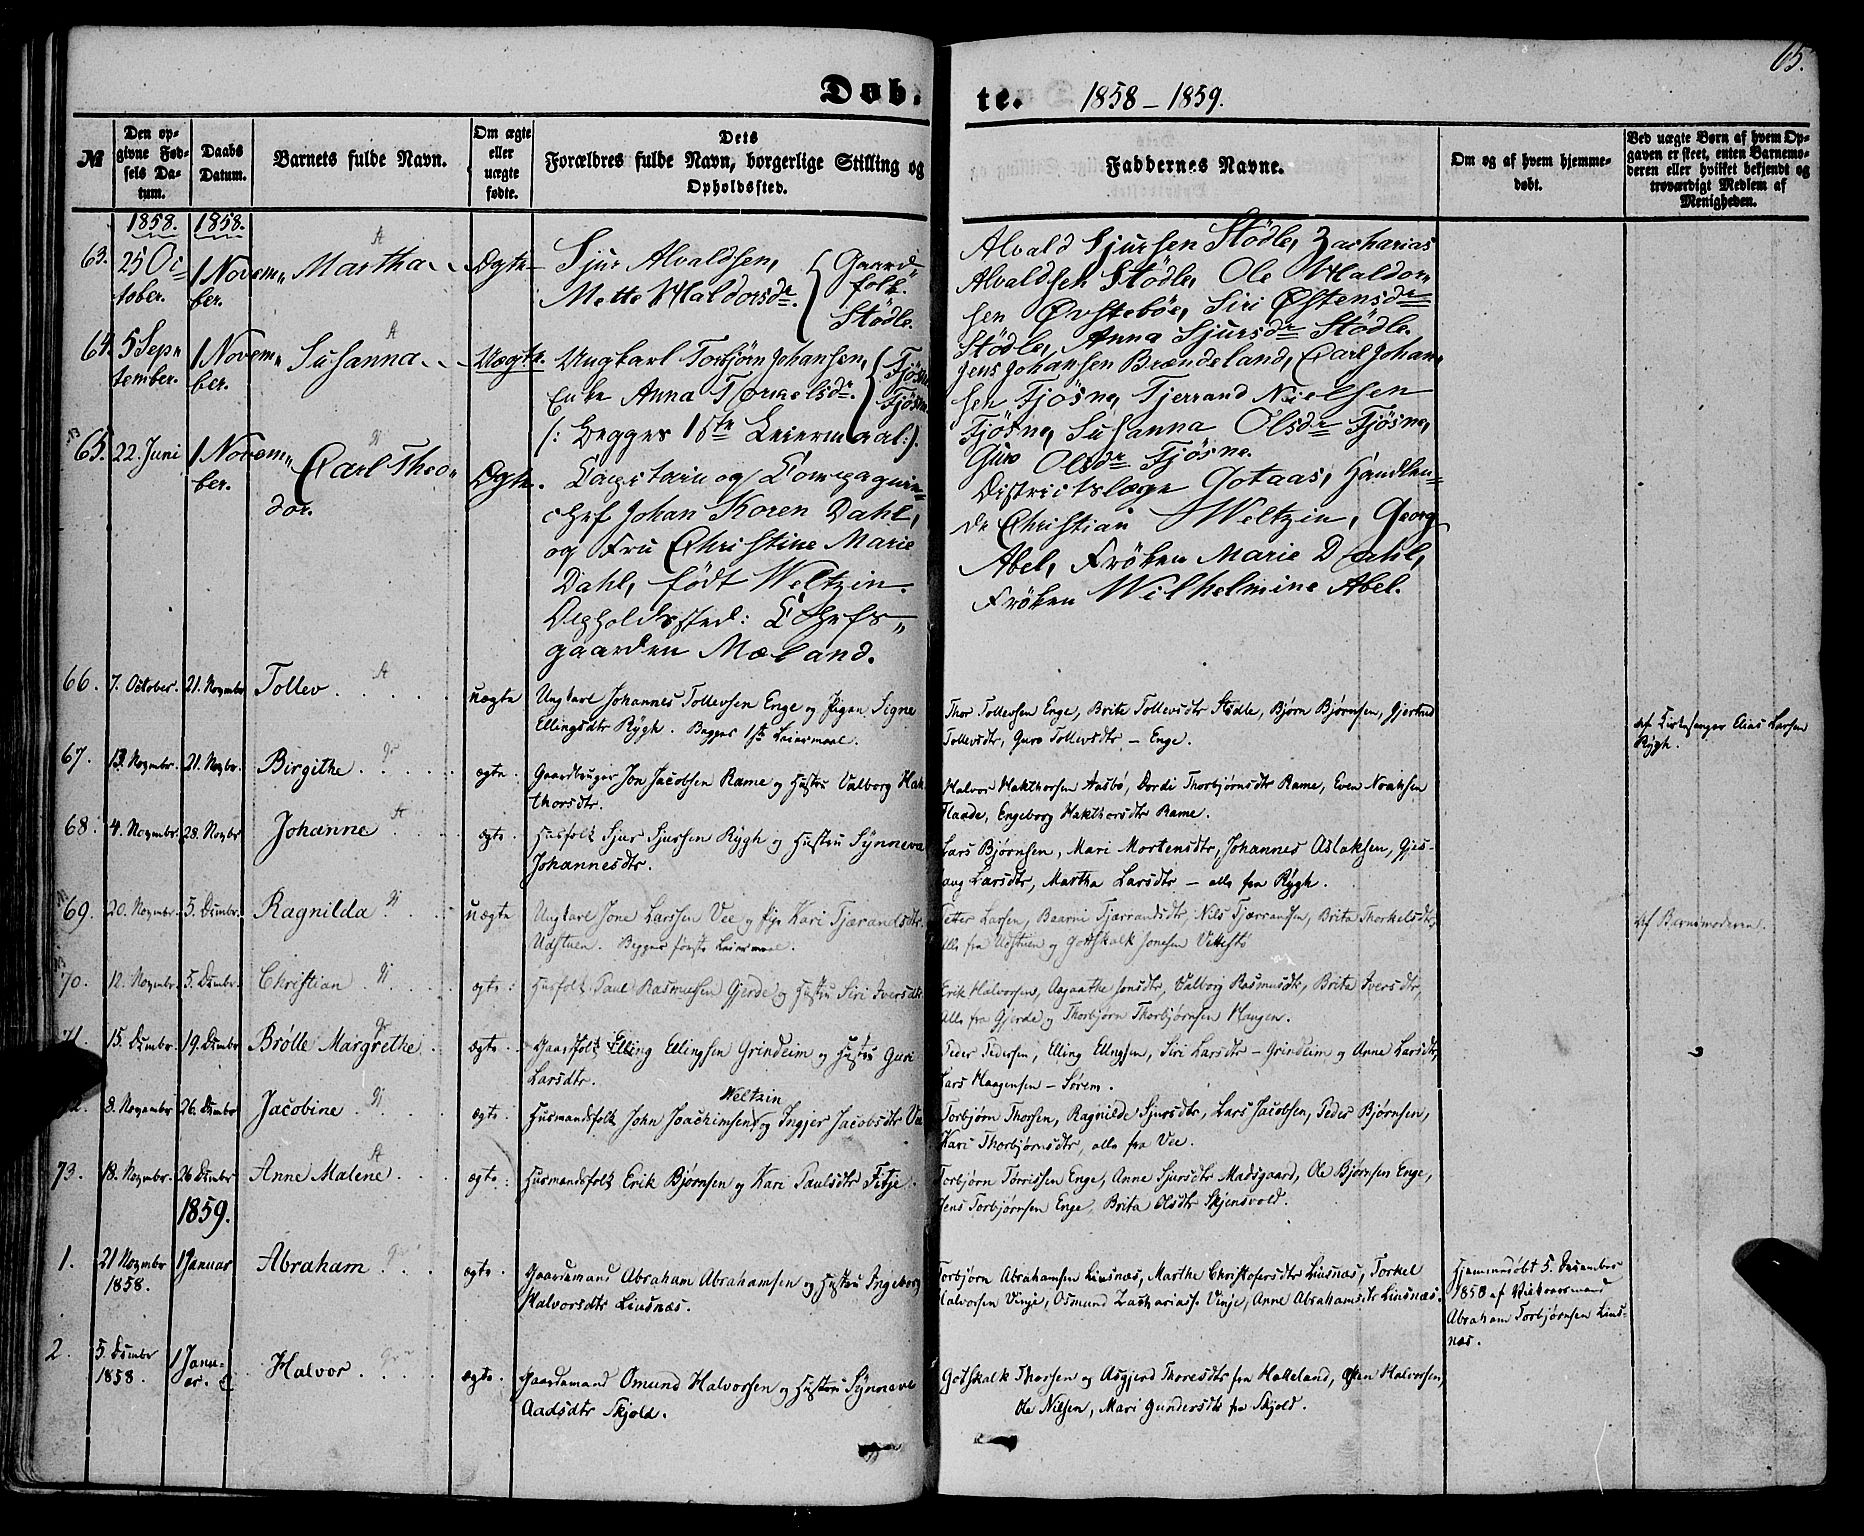 65.
Døb-te. 1858-1859.
№
Den opgivne Fødsels Datum.
Daabs Datum.
Barnets fulde Navn.
Om ægte eller uægte fødte.
Dets Forældres fulde Navn, borgerlige Stilling og Opholdssted.
Faddernes Navne.
Om og af hvem hjemmedøbt.
Ved uægte Børn af hvem Opgaven er skeet, enten Barnemoderen eller hvilket bekjendt og troværdigt Medlem af Menigheden.
1858. 1858.
63. 25 October. 1 November. Martha Ægte
Sjur Alvaldsen,
Mette Haldorsdr. Gaardfolk. Stødle.
Alvald Sjursen Stødle, Zacharias
Alvaldsen Stødle, Ole Haldor„
sen Øvstebøe, Siri Østensdr
Stødle, Anna Sjursdr Stødle.
64. 5 September. 1 November. Susanna Uægte.
Ungkarl Torbjørn Johansen, Fjøsne
Enke Anna Tormelsdr. Fjøsne.
/: Begges 1ste Leiermaal :/.
Jens Johansen Brændeland, Carl Johan„
sen Fjøsne, Tjerrand Nielsen
Fjøsne, Susanna Olsdr Fjøsne,
Guro Olsdr Fjøsne.
65. 22 Juni 1 November. Carl Theodor. Ægte.
Capitain og Compagnie„
chef Johan Koren Dahl,
og Fru Christine Marie
Dahl, født Weltzin.
Opholdssted: Chefs„
gaarden Mæland.
Districtslæge Gotaas, Handlen„
de Christian Weltzin, Georg
Abel, Frøken Marie Dahl,
Frøken Wilhelmine Abel.
66. 7. October. 21. Novmbr Tollev. uægte
Ungkarl Johannes Tollevsen Enge og Pigen Signe
Ellingsdtr Rygh. Begges 1ste Leiermaal.
Thor Tollevsen Enge, Brite Tollevsdtr Stødle, Bjørn Bjørnsen, Gjertrud
Tollevsdtr, Guro Tollevsdtr - Enge.
af Kirkesanger Elias Larsen
Rygh.
67. 13. Novmbr. 21. Novbr. Birgithe. ægte.
Gaardbruger Jon Jacobsen Rame og Hustru Valborg Hak
thorsdtr.
Halvor Hakthorsen Aasbø, Dordi Thorbjørnsdtr Rame, Even Noaksen
Flaade, Engeborg Hakthorsdtr Rame.
68. 4. Novmbr. 28. Novbr Johanne. ægte.
Husfolk Sjur Sjursen Rygh og Hustru Synneva
Johannesdtr.
Lars Bjørnsen, Mari Mortensdtr, Johannes Aslaksen, Gjes-
laug Larsdtr, Martha Larsdtr - alle fra Rygh.
69. 20. Novmbr 5. Dcmbr. Ragnilda. uægte
Ungkarl Jone Larsen Vee og Pige Kari Tjærandsdtr
Udstuen. Begges første Leiermaal.
Petter Larsen, Baarni Tjærrandsdtr, Nils Tjærransen, Brita Thorkelsdtr,
alle fra Udstuen og Gotskalk Jonesen Vettestø
af Barnemoderen.
70. 12. Novmbr. 5. Dcmbr. Christian. ægte.
Husfolk Paul Rasmusen Gjerde og Hustru Siri Iversdtr
Erik Halvorsen, Aagaathe Jonsdtr, Valborg Rasmusdtr, Brita Iversdtr,
alle fra Gjerde og Thorbjørn Thorbjørnsen Haugen.
71. 15. Dcmbr. 19. Dcmbr Brølle Margrethe. ægte.
Gaardfolk Elling Ellingsen Grindeim og Hustru Guri
Larsdtr.
Peder Pedersen, Elling Ellingsen, Siri Larsdtr - Grindeim og Anne Larsdtr,
Lars Haagensen - Sørem.
72. 8. Novmbr 26. Dcmbr Jacobine. ægte.
Weltzin
Husmandsfolk John Joachimsen og Ingjer Jacobsdtr Vee
Torbjørn Thorsen, Ragnilde Sjursdtr, Lars Jacobsen, Peder Bjørnsen,
Kari Thorbjørnsdtr, alle fra Vee.
73. 18. Novmbr. 26 Dcmbr Anne Malene. ægte.
Husmandsfolk Erik Bjørnsen og Kari Paulsdtr Fitje.
Torbjørn Torrissen Enge, Anne Sjursdtr Madsgaard, Ole Bjørnsen Enge,
Jens Torbjørnsen Enge, Brita Olsdtr Skjensvold.
1859.
1. 21 Novmbr 1858. 1 Januar Abraham. ægte.
Gaardmand Abraham Abrahamsen og Hustru Ingeborg
Halvorsdtr Liusnæs.
Torbjørn Abrahamsen Liusnæs, Marthe Christofersdtr Liusnæs, Torkel
Halvorsen Vinje, Osmund Zachariass. Vinje, Anne Abrahamsdtr Liusnæs.
Hjemmedøbt 5. December
1858 af
Abraham Torbjørnsen Lius-
næs.
2. 5. Dcmbr 1858. 1 Januar. Halvor. ægte.
Gaardmand Omund Halvorsen og Hustru Synneve
Aadsdtr Skjold.
Gotskalk Thorsen og Asgjerd Thoresdtr fra Halleland, Osten Halvorsen,
Ole Nilsen, Mari Gundersdtr fra Skjold.